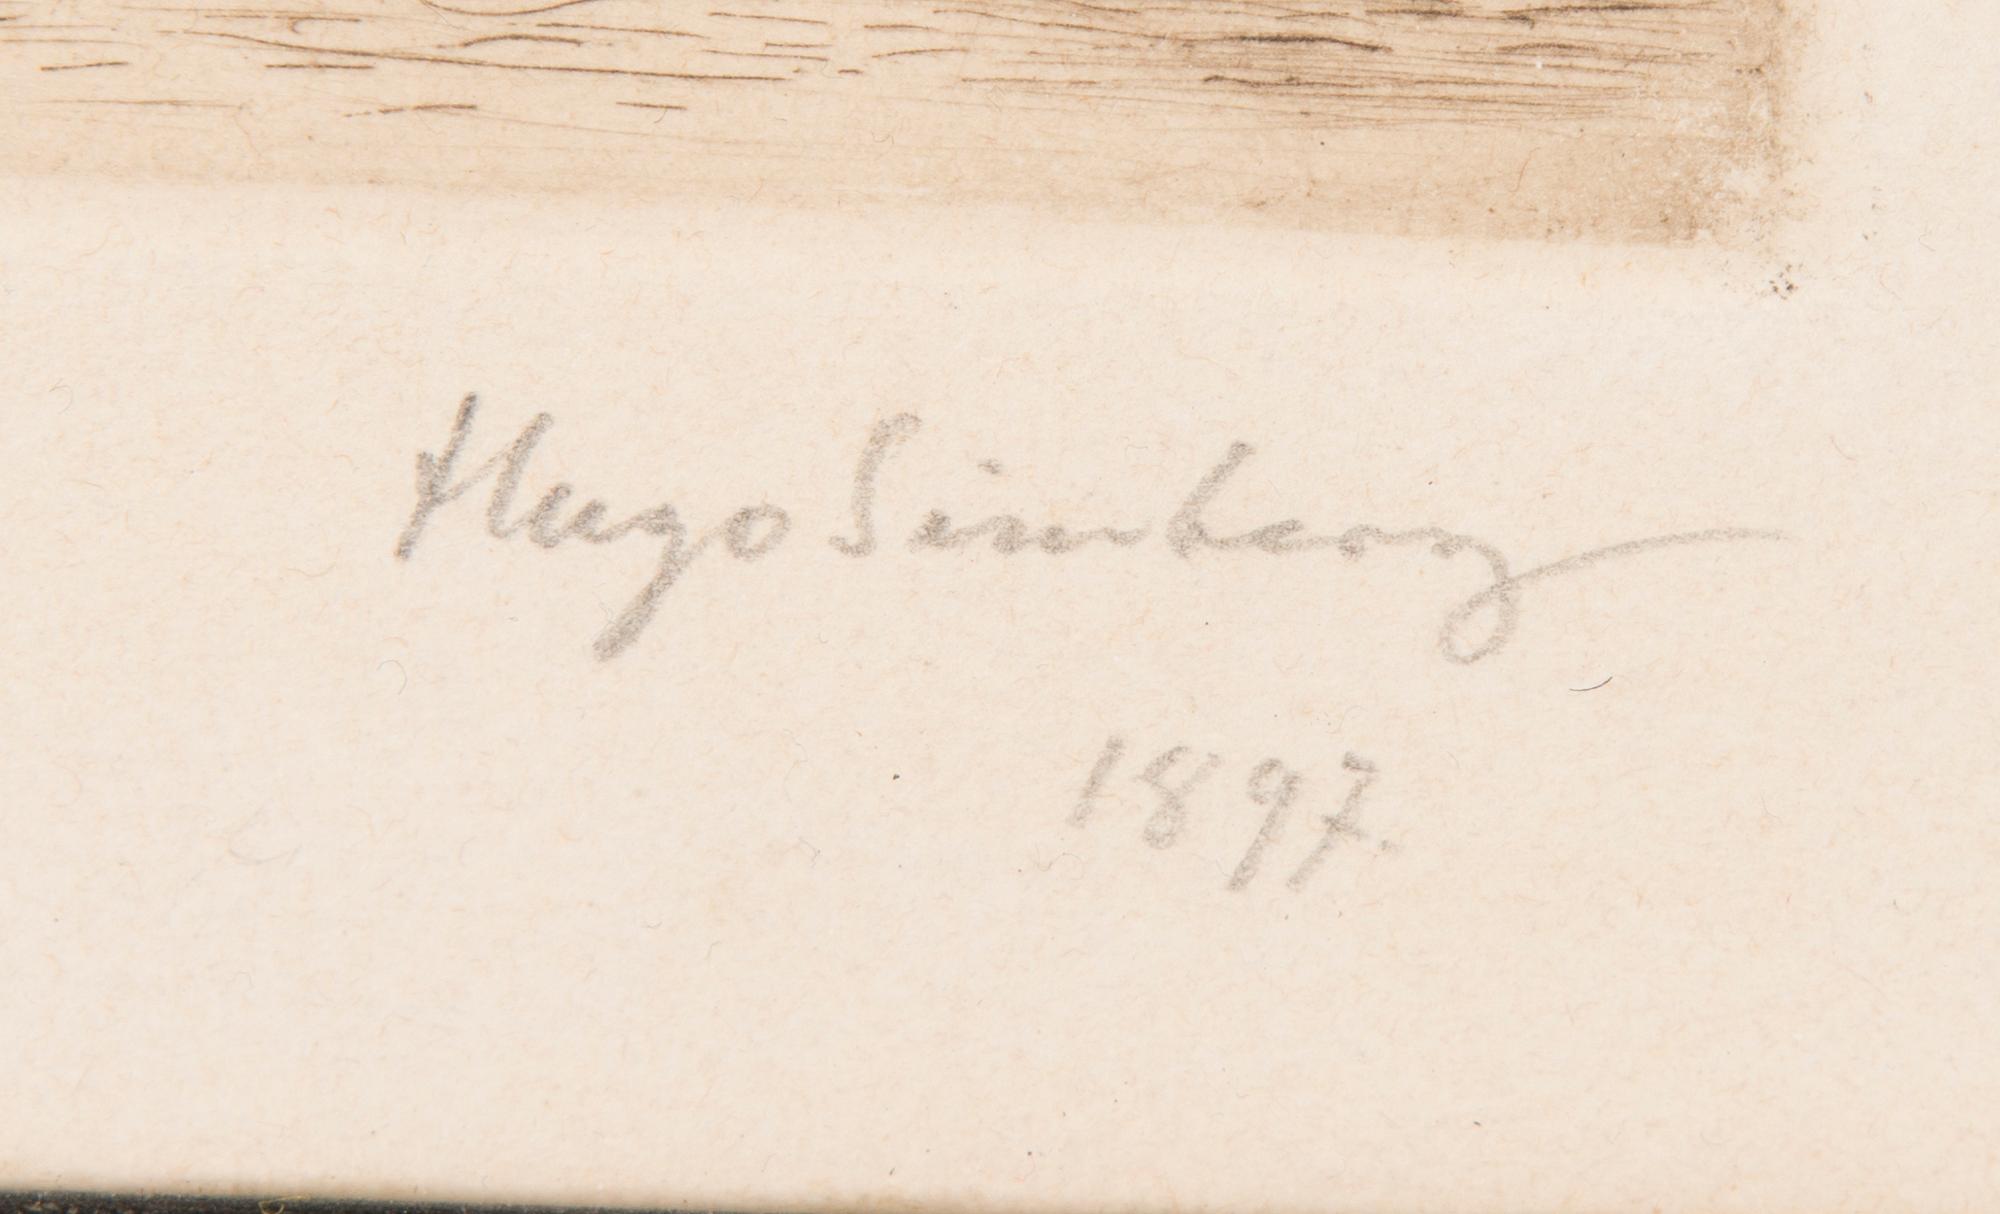 Hugo Simberg
1897.